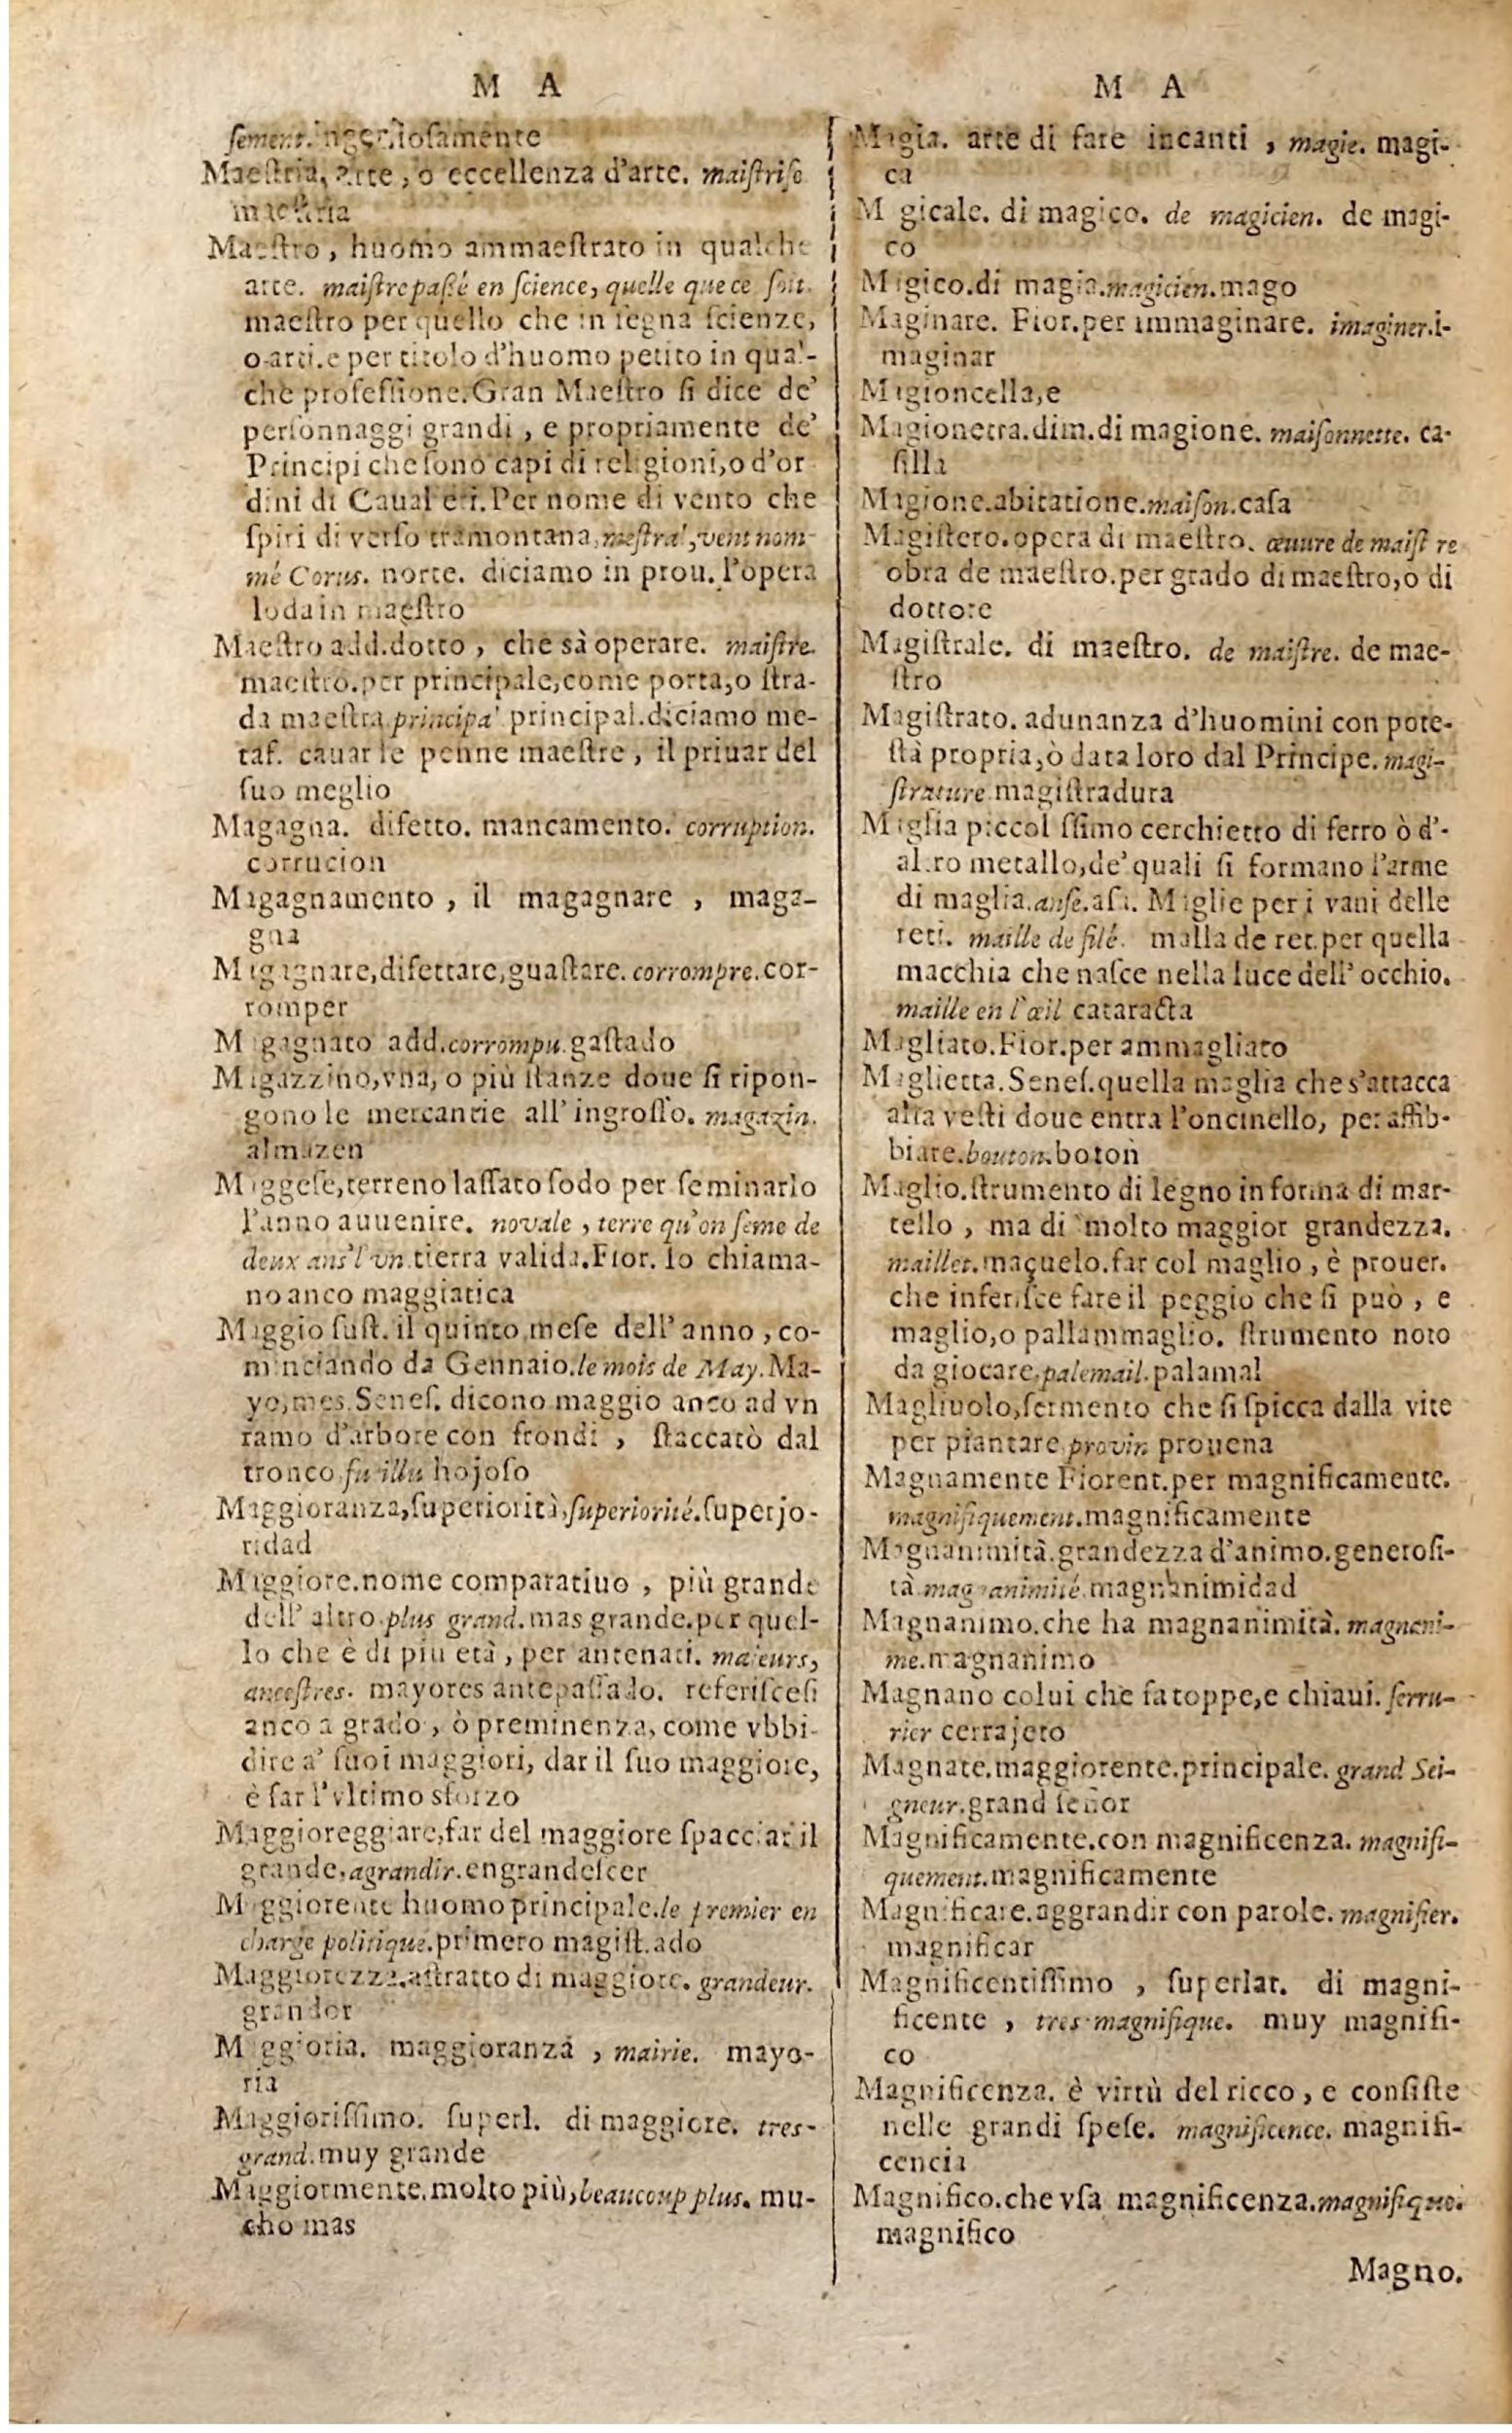 M A
ſement. ingegnoſamente
Maeſtria, Arte, o eccellenza d'arte. maiſtriſe
maeſtria
Maeſtro, huomo ammaeſtrato in qualche
arte. maiſtre paſſé en ſcience, quelle que ce ſoit.
maeſtro per quello che inſegna ſcienze,
o arti. e per titolo d'huomo petito in qual-
che profeſſione. Gran Maeſtro ſi dice de'
perſonnaggi grandi, e propriamente de'
Principi che ſono capi di religioni, o d'or
dini di Caualieri. Per nome di vento che
ſpiri di verſo tramontana, meſtral, vent nom-
mé Corus. norte. diciamo in prou. l'opera
loda in maeſtro
Maeſtro add. dotto, che sà operare. maiſtre.
maeſtro. per principale, come porta, o ſtra-
da maeſtra principal principal. diciamo me-
taf. cauar le penne maeſtre, il priuar del
ſuo meglio
Magagna. difetto. mancamento. corruption.
corrucion
Magagnamento, il magagnare, maga-
gna
Magagnare, difettare, guaſtare. corrompre. cor-
romper
Magagnato add. corrompu. gaſtado
Magazzino, vna, o più ſtanze doue ſi ripon-
gono le mercantie all' ingroſſo. magazin.
almazen
Maggeſe, terreno laſſato ſodo per ſeminarlo
l'anno auuenire. novale, terre qu'on ſeme de
deux ans l'vn. tierra valida. Fior. lo chiama-
no anco maggiatica
Maggio ſuſt. il quinto meſe dell' anno, co-
minciando da Gennaio. le mois de May. Ma-
yo, mes. Seneſ. dicono maggio anco ad vn
ramo d'arbore con frondi, ſtaccatò dal
tronco fuillu hojoſo
Maggioranza, ſuperiorità, ſuperiorité. ſuperjo-
ridad
Maggiore. nome comparatiuo, più grande
dell' altro. plus grand. mas grande. per quel-
lo che è di più età, per antenati. maieurs,
anceſtres. mayores antepaſſado. referiſceſi
anco a grado, ò preminenza, come vbbi-
dire a' ſuoi maggiori, dar il ſuo maggiore,
è far l'vltimo sforzo
Maggioreggiare, far del maggiore ſpacciar il
grande. agrandir. engrandeſcer
Maggiorente huomo principale. le premier en
charge politique. primero magiſt.ado
Maggiorezza. aſtratto di maggiore. grandeur.
grandor
Maggioria. maggioranza, mairie. mayo-
ria
Maggioriſſimo. ſuperl. di maggiore. tres-
grand. muy grande
Maggiormente. molto più, beaucoup plus. mu-
cho mas
M A
Magia. arte di fare incanti, magie. magi-
ca
Magicale. di magico. de magicien. de magi-
co
Magico. di magia. magicien. mago
Maginare. Fior. per immaginare. imaginer. i-
maginar
Magioncella, e
Magionetta. dim. di magione. maiſonnette. ca-
ſilla
Magione. abitatione. maiſon. caſa
Magiſtero. opera di maeſtro. œuure de maiſt re
obra de maeſtro. per grado di maeſtro, o di
dottore
Magiſtrale. di maeſtro. de maiſtre. de mae-
ſtro
Magiſtrato. adunanza d'huomini con pote-
ſtà propria, ò data loro dal Principe. magi-
ſtrature magiſtradura
Maglia piccoliſſimo cerchietto di ferro ò d'-
altro metallo, de' quali ſi formano l'arme
di maglia. anſe. aſa. Maglie per i vani delle
reti. maille de filé. malla de ret. per quella
macchia che naſce nella luce dell' occhio.
maille en l'œil cataracta
Magliato. Fior. per ammagliato
Maglietta. Seneſ. quella maglia che s'attacca
alla veſti doue entra l'oncinello, per affib-
biare. bouton. boton
Maglio. ſtrumento di legno in forma di mar-
tello, ma di molto maggior grandezza.
maillet. maçuelo. far col maglio, è prouer.
che inferiſce fare il peggio che ſi può, e
maglio, o pallammaglio. ſtrumento noto
da giocare. palemail. palamal
Magliuolo, ſermento che ſi ſpicca dalla vite
per piantare provin prouena
Magnamente Fiorent. per magnificamente.
magnifiquement. magnificamente
Magnanimità. grandezza d'animo. generoſi-
tà magnanimité. magnanimidad
Magnanimo. che ha magnanimità. magnani-
me. magnanimo
Magnano colui che fa toppe, e chiaui. ſerru-
rier cerrajero
Magnate. maggiorente. principale. grand Sei-
gneur. grand ſeñor
Magnificamente. con magnificenza. magnifi-
quement. magnificamente
Magnificare. aggrandir con parole. magnifier.
magnificar
Magnificentiſſimo, ſuperlat. di magni-
ficente, tres magnifique. muy magnifi-
co
Magnificenza. è virtù del ricco, e conſiſte
nelle grandi ſpeſe. magnificence. magnifi-
cencia
Magnifico. che vſa magnificenza. magnifique.
magnifico
Magno.